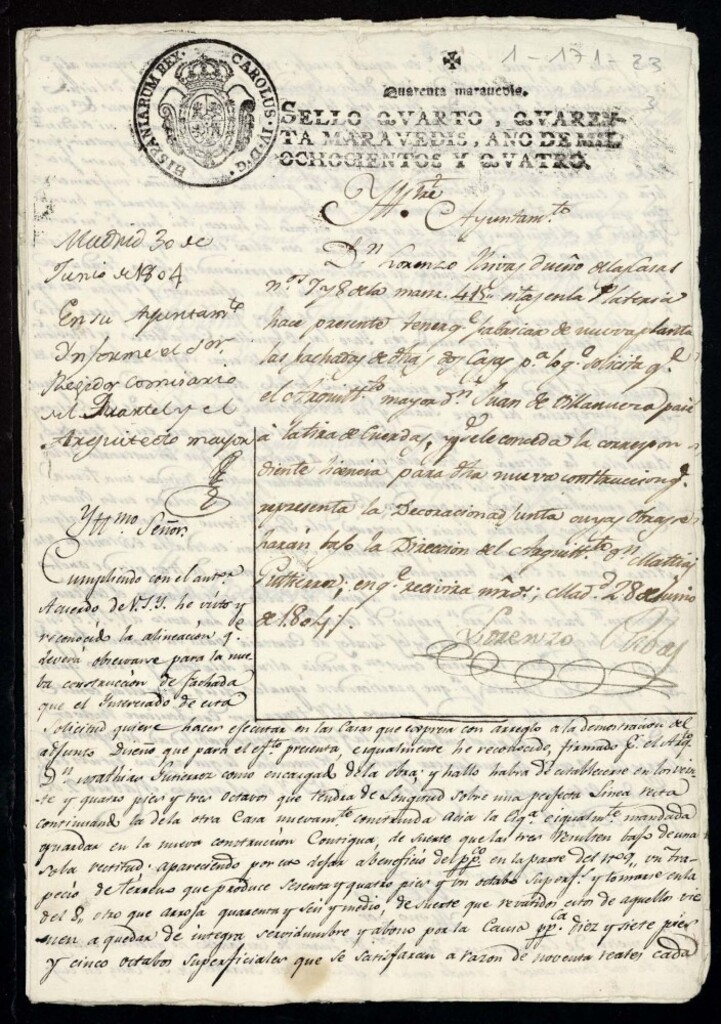 1-171-23
HISPANIARUM REX. CAROLUS. IV. D. G.
Quarenta maravedis.
SELLO QVARTO, QVAREN-
TA MARAVEDIS, AÑO DE MIL
OCHOCIENTOS Y QVATRO.
Yll. Ayuntam.to
Dn. Lorenzo Rivas dueño de las Casas
n.os 7 y 8 de la manz. 415 sitas en la Plateria
hace presente tener q.e fabricar de nueva planta
las fachadas de dhas dos Casas p.a lo q.e solicita q.e
el Arquit.to mayor Dn. Juan de Villanueva pase
á la tira de Cuerdas, y q.e se le conceda la correspon
diente licencia para dha nueva construccion q.e
representa la Decoracion adjunta cuyas obras se
harán bajo la Direccion del Arquit.to Dn. Mathias
Gutierrez; en q.e recivira mrd.; Mad.d 28 de Junio
de 1804.
Lorenzo Rivas
Madrid 30 de
Junio de 1804
En su Ayuntam.to
Ynforme el Sor.
Regidor Comisario
del Quartel y el
Arquitecto mayor
Yll.mo Señor.
Cumpliendo con el antr.
Acuerdo de V.S.Y. he visto y
reconocido la alineacion q.e
devera observarse para la nue
ba construccion de fachada
que el Interesado de esta
Solicitud quiere hacer esecutar en las Casas que expresa con arreglo a la demostracion del
adjunto Diseño que para el efto presenta, e igualmente he reconocido, firmado p.r el Arq.
Dn. Mathias Gutierrez como encargado de la obra; y hallo habra de establecerse en los vein
te y quatro pies y tres octavos que tendra de Longitud sobre una perfecta Linea recta
continuando la de la otra Casa nuevam.te construida acia la e igualm.te mandada
guardar en la nueva construccion Contigua, de suerte que las tres resulten bajo de una
sola rectitud. apareciendo por eso dejar a beneficio del pp.co en la parte del n.o 7, un tra-
pecio de terreno que produce sesenta y quatro pies y un octabo superf. y tomarse en la
del 8, otro que arroja quarenta y seis y medio, de suerte que revatidos estos de aquellos vie
nen a quedar de integra servidumbre y abono por la Causa pp.ca diez y siete pies
y cinco octabos superficiales que se satisfaran a razon de noventa reales cada